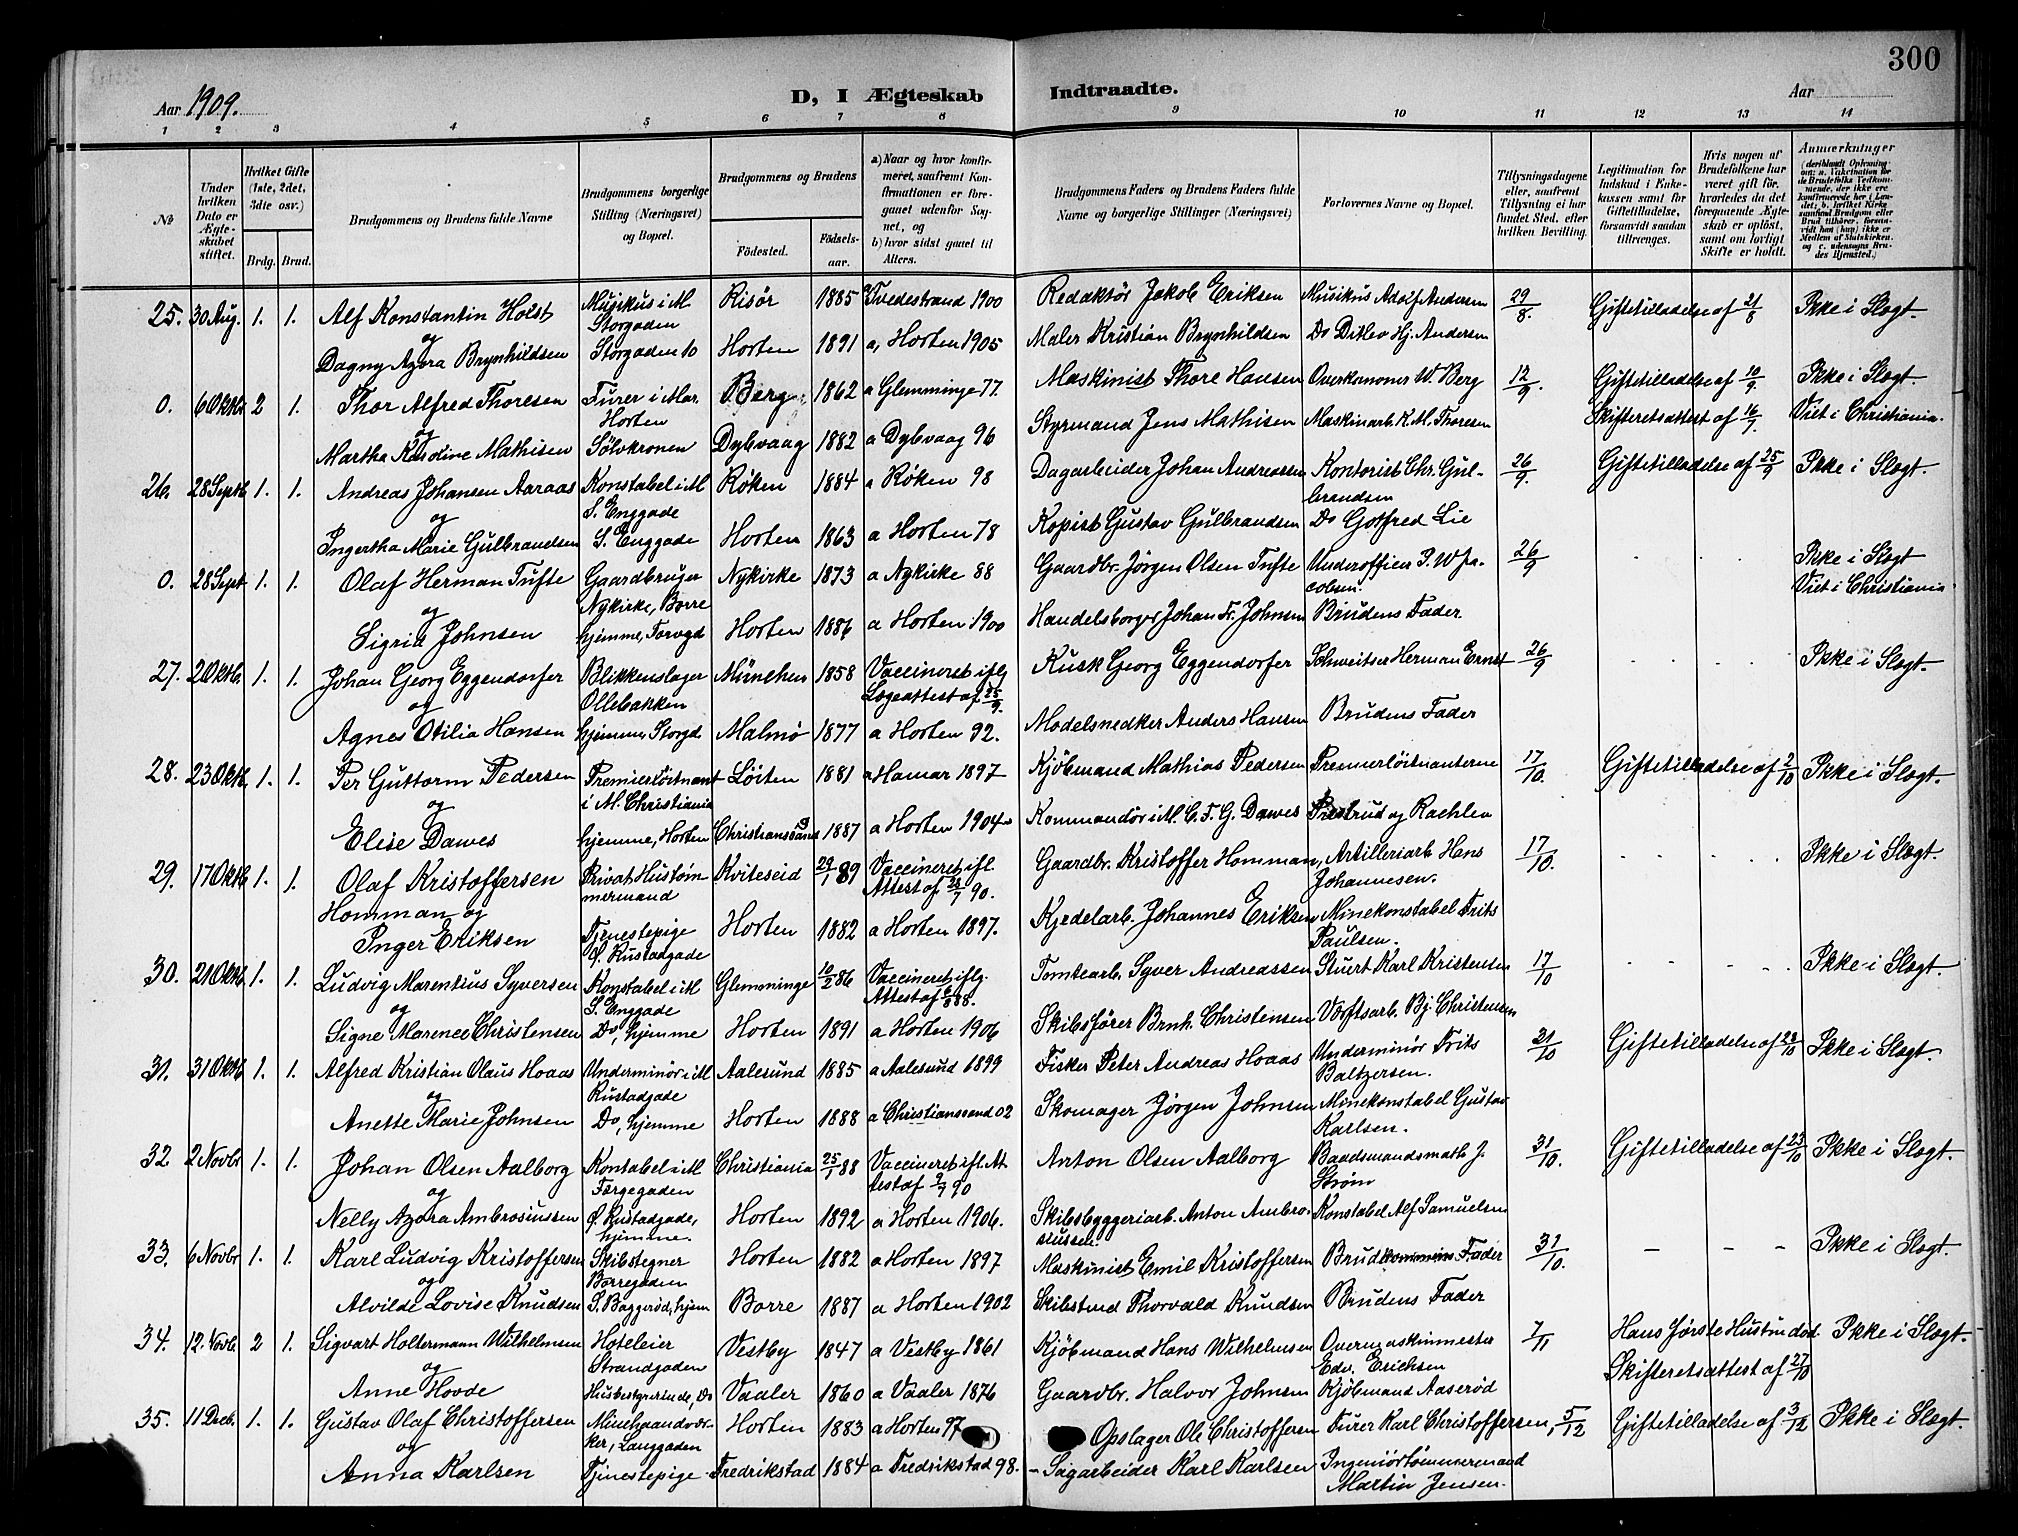 300
Aar 1909.
D, I Ægteskab Indtraadte.
Aar
1 2 3 4 5 6 7 8 9 10 11 12 13 14
No
Under hvilken Dato er Ægteskabet stiftet.
Hvilket Gifte (1ste, 2det, 3die osv.)
Brdg. Brud.
Brudgommens og Brudens fulde Navne
Brudgommens borgerlige Stilling (Næringsvei) og Bopæl.
Brudgommens og Brudens
Fødested.
Fødselsaar.
a) Naar og hvor konfirmeret, saafremt Konfirmationen er foregaaet udenfor Sognet, og
b) hvor sidst gaaet til Alters.
Brudgommens Faders og Brudens Faders fulde Navne og borgerlige Stillinger (Næringsvei)
Forlovernes Navne og Bopæl.
Tillysningsdagene eller, saafremt Tillysning ei har fundet Sted, efter hvilken Bevilling.
Legitimation for Indskud i Enkekassen samt for Giftetilladelse, forsaavidt saadan tiltrænges.
Hvis nogen af Brudefolkene har været gift før, hvorledes da det foregaaende Ægteskab er opløst, samt om lovligt Skifte er holdt.
Anmærkninger
25. 30 Aug. 1. 1. Alf Konstantin Holst Musikus i M. Storgaden Risør 1885 a, Tvedestrand 1900 Redaktør Jakob Eriksen Musikus Adolf Andersen 29/8. Giftetilladelse af 21/8 Ikke i Slægt.
og
Dagny Azora Brynhildsen Storgaden 10 Horten 1891 a, Horten 1905 Maler Kristian Brynhildsen Do Ditlev Hj. Andersen
0. 6 Oktbr 2 1. Thor Alfred Thoresen Furer i Mar. Horten Berg 1862 a Glemminge 77. Maskinist Thore Hansen Overkanoner W. Berg 12/9. Giftetilladelse af 10/9. Ikke i Slægt.
og Skifteretsattest af 16/7 Viet i Christiania.
Martha Karoline Mathisen Sølvkronen Dybvaag 1882 a Dybvaag 96 Styrmand Jens Mathisen Maskinarb. K. M. Thoresen
26. 28 Septb. 1. 1. Andreas Johansen Aaraas Konstabel i M S. Enggade Røken 1884 a Røken 98 Dagarbeider Johan Andreassen Kontorist Chr. Gulbrandsen 26/9. Giftetilladelse af 25/9 Ikke i Slægt.
og
Ingertha Marie Gulbrandsen S. Enggade Horten 1863 a Horten 78 Kopist Gustav Gulbrandsen Do Gotfred Lie
0. 28 Sept 1. 1. Olaf Herman Tufte Gaardbruger Nykirke, Borre Nykirke 1873 a Nykirke 88 Gaardbr. Jørgen Olsen Tufte Underofficer I. W Jacobsen. 26/9 Ikke i Slægt Viet i Christiania
og
Sigrid Johnsen hjemme, Torvgd Horten 1886 a Horten 1900 Handelsborger Johan Fr. Johnsen Brudens Fader.
27. 2 Oktb. 1. 1. Johan Georg Eggendorfer Blikkenslager Ollebakken München 1858 Vaccineret iflg Lægeattest af 25/9. Kusk Georg Eggendorfer Schweitser Herman Ernst 26/9 Ikke i Slægt.
og
Agnes Otilia Hansen hjemme, Storgd. Malmø 1877 a Horten 92. Modelsnedker Anders Hansen Brudens Fader
28. 23 Oktb. 1. 1. Per Guttorm Pedersen Premierløitnant i M. Christiania Løiten 1881 a Hamar 1897 Kjøbmand Mathias Pedersen Premierløitnanterne 17/10. Giftetilladelse af 2/10 Ikke i Slægt.
og
Elise Dawes hjemme, Horten Christianssand 1887 a Horten 1904 Kommandør i M. C. F. G. Dawes Prestrud og Raehlew
29. 17 Oktb 1. 1. Olaf Kristoffersen Homman og Privat Hustømmermand Kviteseid 29/1 89 Vaccineret ifl. Attest af 28/7 90. Gaardbr. Kristoffer Homman, Artilleriarb. Hans Johannesen. 17/10. Ikke i Slægt.
Inger Eriksen Tjenestepige Ø. Rustadgade Horten 1882 a Horten 1897. Kjedelarb. Johannes Eriksen Minekonstabel Frits Paulsen.
30. 21 Oktb 1. 1. Ludvig Marentius Syversen Konstabel i M S. Enggade Glemminge 10/2 86 Vaccineret iflg. Attest af 88. Tomtearb. Syver Andreassen Stuert Karl Kristensen 17/10 Ikke i Slægt.
og
Signe Marence Christensen Do, hjemme Horten 1891 a Horten 1906 Skibsfører Brnh. Christensen Værftsarb. Bj. Christensen
31. 31 Oktb 1. 1. Alfred Kristian Olaus Hoaas Underminør i M Rustadgade Aalesund 1885 a Aalesund 1899 Fisker Peter Andreas Hoaas Underminør Frits Baltzersen. 21/10 Giftetilladelse af 22/10 Ikke i Slægt.
og
Anette Marie Johnsen Do, hjemme Horten 1888 a Christianssand 02 Skomager Jørgen Johnsen Minekonstabel Gustav Karlsen.
32. 2 Novbr 1. 1. Johan Olsen Aalborg Kontabel i M Færgegaden Christiania 25/1 88 Vaccineret ifl. Attest af 2/7 90 Anton Olsen Aalborg Baadsmandsmath J. Strøm 31/10. Giftetilladelse af 23/10 Ikke i Slægt.
og
Nelly Azora Ambrosiussen Ø. Rustadgade, hjemme. Horten 1892 a Horten 1906. Skibsbyggeriarb. Anton Ambrosiussen. Konstabel Alf Samuelsen
33. 6 Novbr 1. 1. Karl Ludvig Kristoffersen Skibstegner Borregaden Horten 1882 a Horten 1897 Maskinist Emil Kristoffersen Brudkommens Fader 31/10. Ikke i Slægt.
og
Alvilde Lovise Knudsen S. Baggerød, hjem Borre 1887 a Horten 1902 Skibstmd Thorvald Knudsen Brudens Fader
34. 12. Novb. 2 1. Sigvart Holtermann Wilhelmsen Hoteleier Strandgaden Vestby 1847 a Vestby 1861 Kjøbmand Hans Wilhelmsen Overmaskinmester Edv. Erichsen 7/11 Hans første Hustru død Ikke i Slægt.
og Skifteretsattest af 27/10
Anne Hovde Husbestyrerinde, Do Vaaler 1860 a Vaaler 1876 Gaardbr. Halvor Johnsen Kjøbmand Aaserød
35. 11 Decb. 1. 1. Gustav Olaf Christoffersen Minehaandværker, Langgaden Horten 1883 a Horten 97 Opslager Ole Christoffersen Furer Karl Christoffersen, 5/12 Giftetilladelse af 3/12 Ikke i Slægt.
og
Anna Karlsen Tjenestepige Fredrikstad 1884 a Fredrikstad 98. Sagarbeider Karl Karlsen Ingeniørtømmermand Martin Jensen.